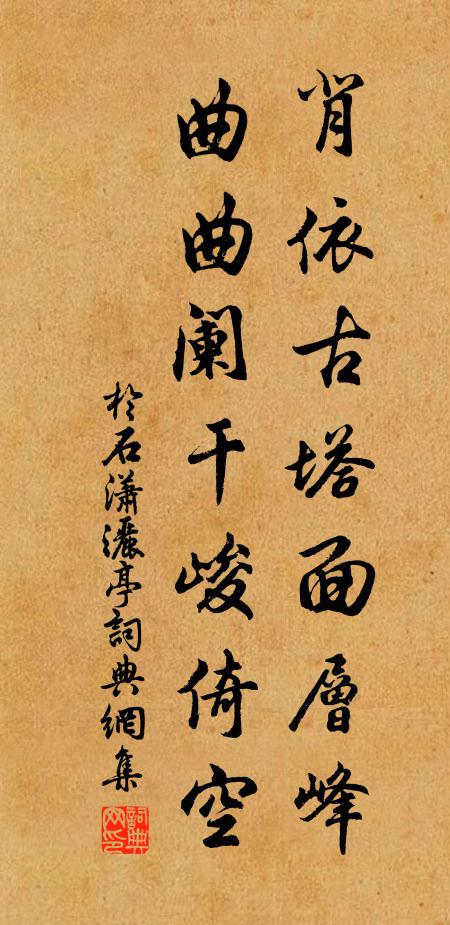 背依古塔面層峰
曲曲阑干峻倚空
於石瀟灑亭詞典網集
詞典
网印